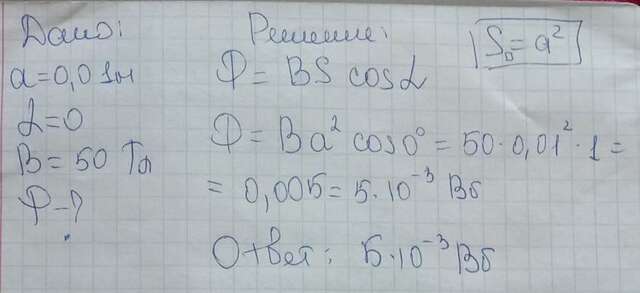 Дано:
a=0,01м
α=0
B=50 Тл
Ф-?
Решение:
S□=a²
Ф=BS cosα
Ф=Ba² cos0°=50·0,01²·1=
=0,005=5·10⁻³ Вб
Ответ: 5·10⁻³ Вб